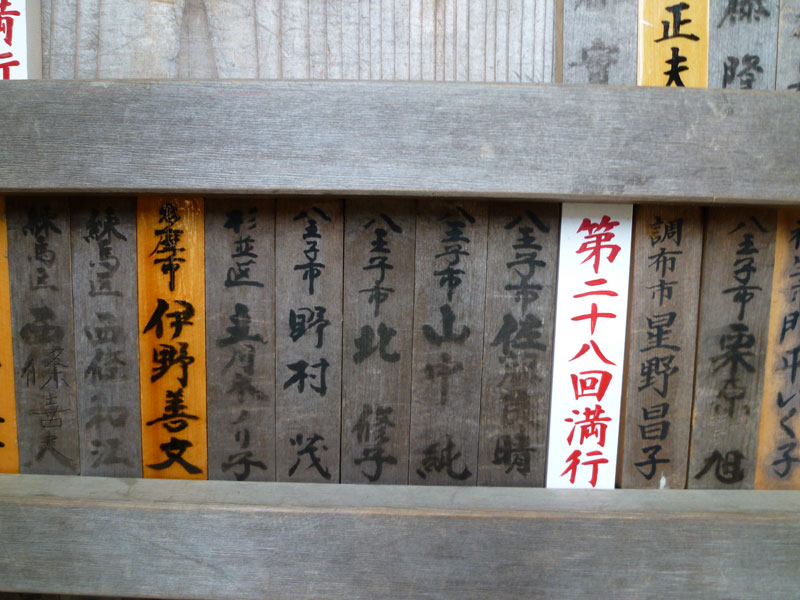 藤隆
正夫
満行
平いく子
八王子市 栗原 旭
調布市 星野昌子
第二十八回満行
八王子市 佐 晴
八王子市 山中 純
八王子市 北 修子
八王子市 野村 茂
杉並区 ノリ子
多摩市 伊野善文
練馬区 西條和江
練馬区 西條喜夫